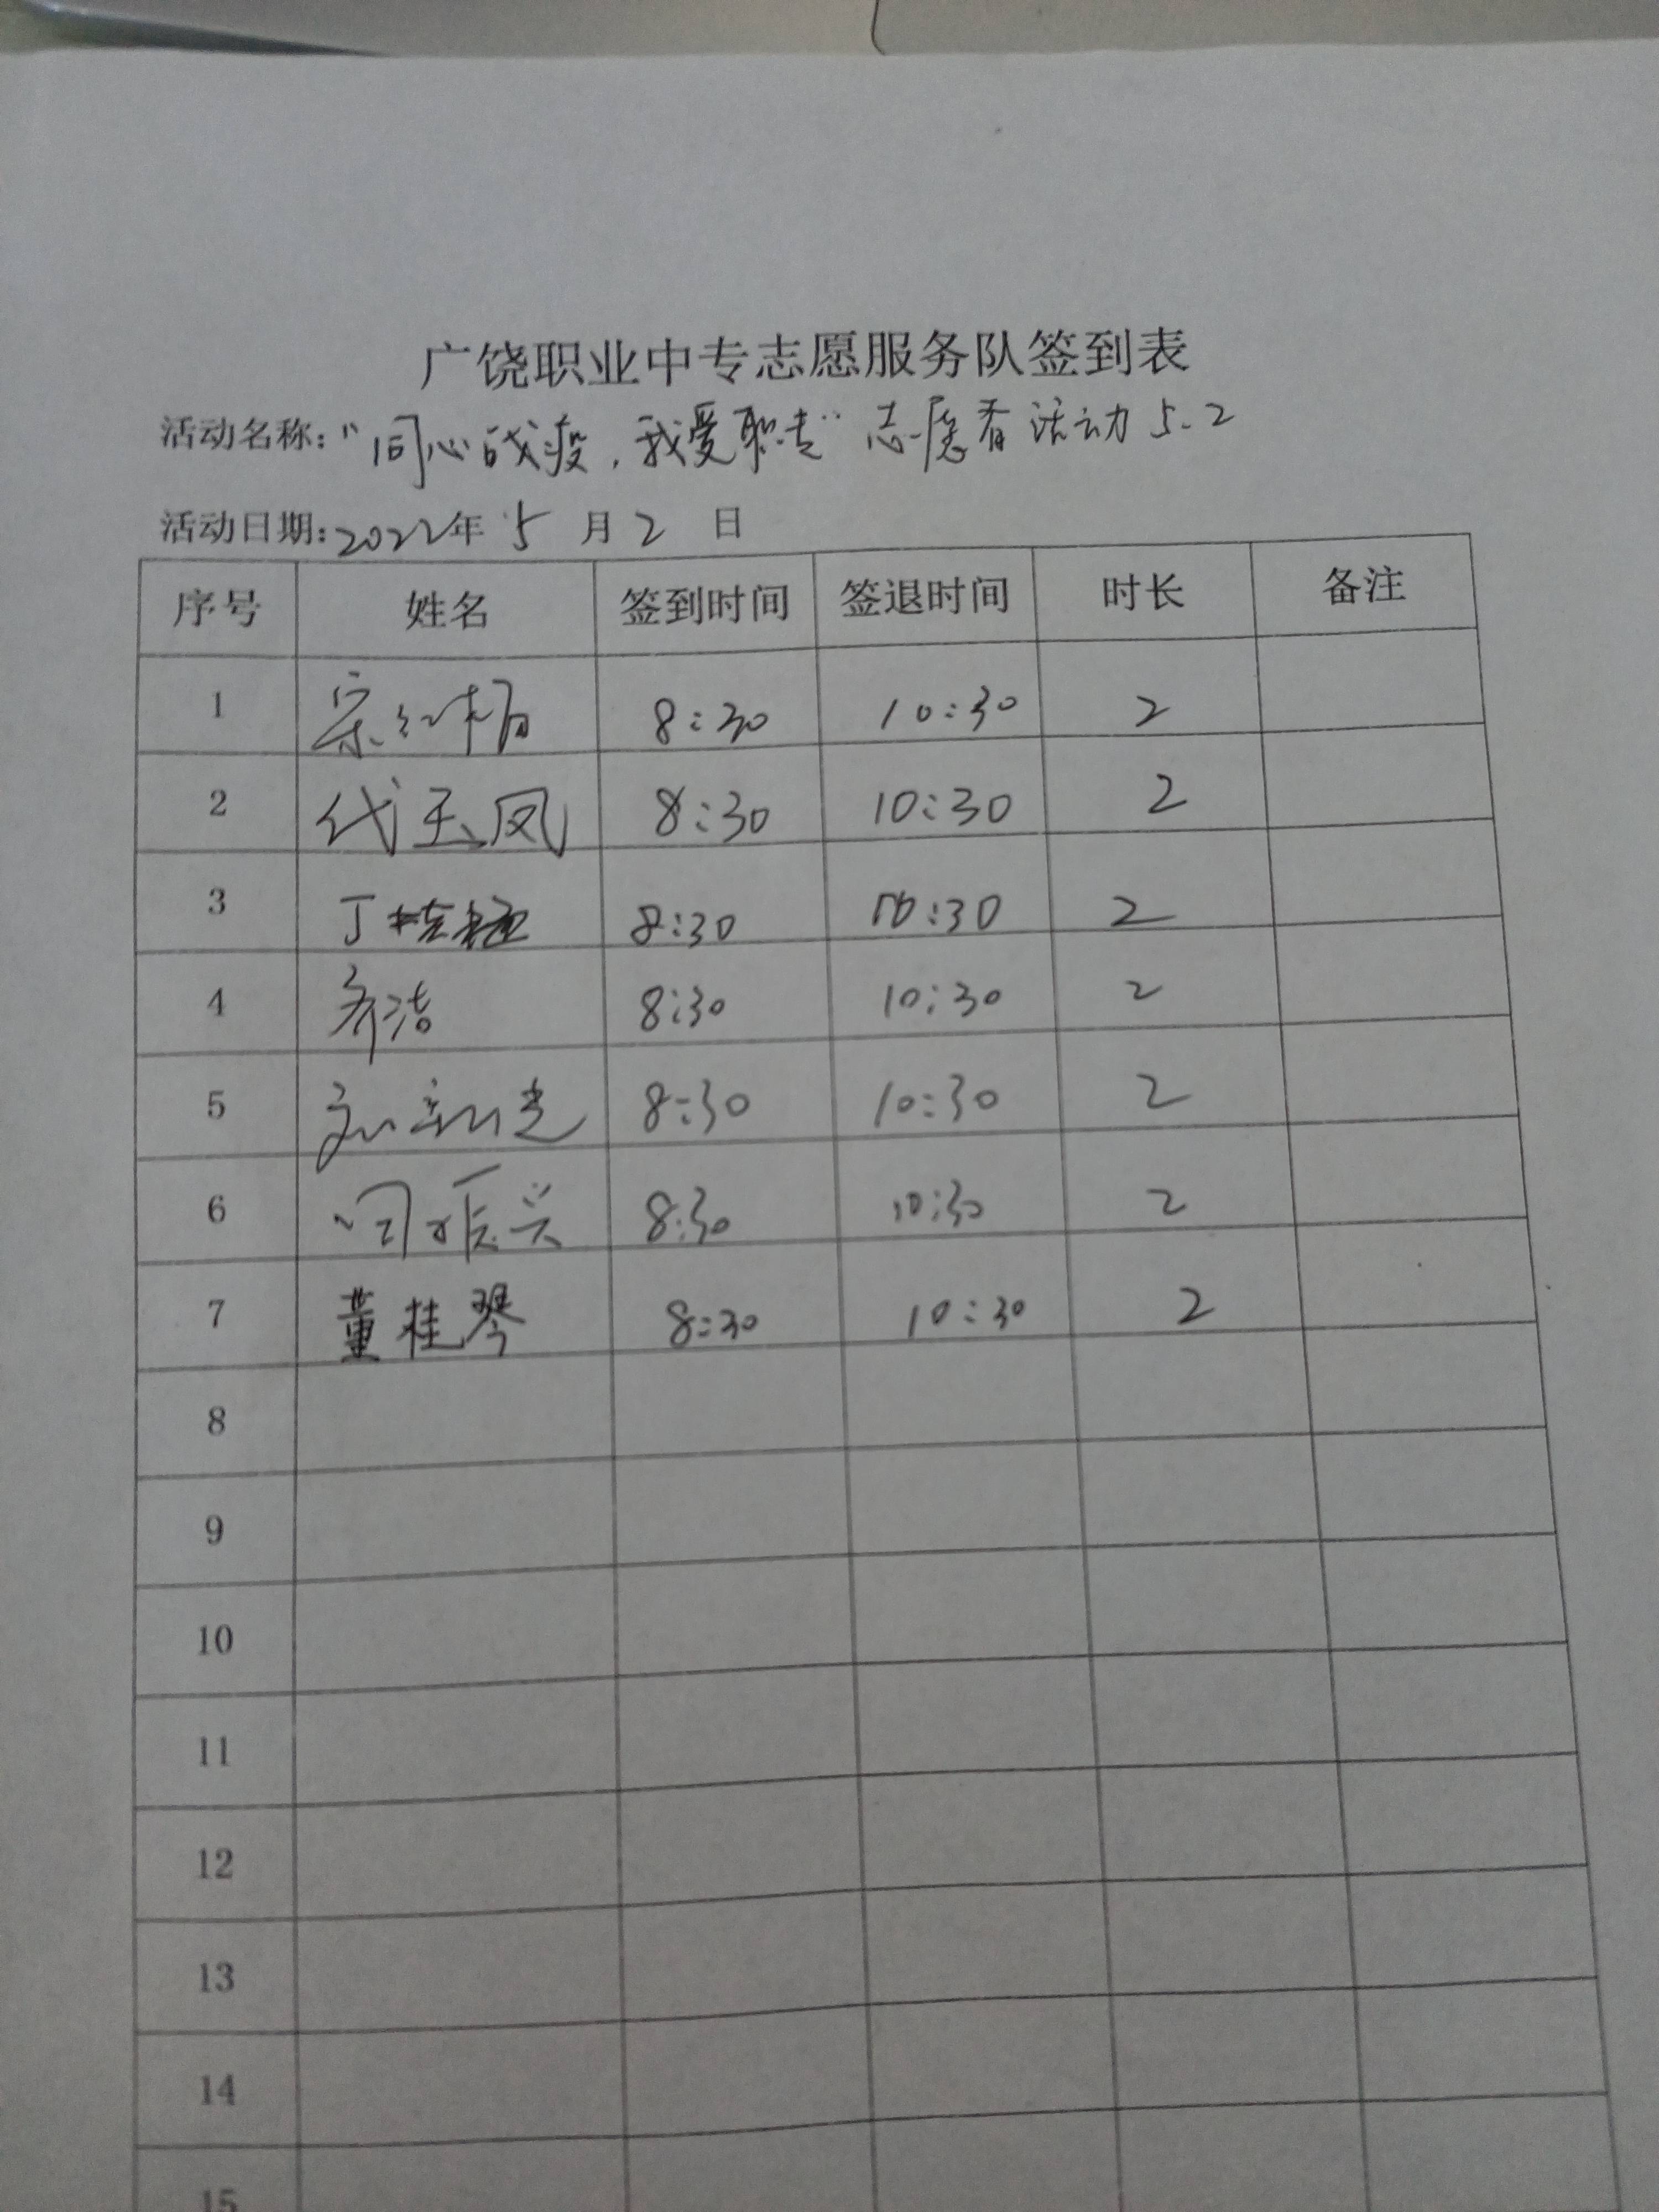 广饶职业中专志愿服务队签到表
活动名称:"同心战疫,我爱职专"志愿者活动5.2
活动日期:2022年5月2日
序号 姓名 签到时间 签退时间 时长 备注
1 宋 8:30 10:30 2
2 代玉凤 8:30 10:30 2
3 丁 8:30 10:30 2
4 齐洁 8:30 10:30 2
5 刘新光 8:30 10:30 2
6 闫振兴 8:30 10:30 2
7 董桂琴 8:30 10:30 2
8
9
10
11
12
13
14
15